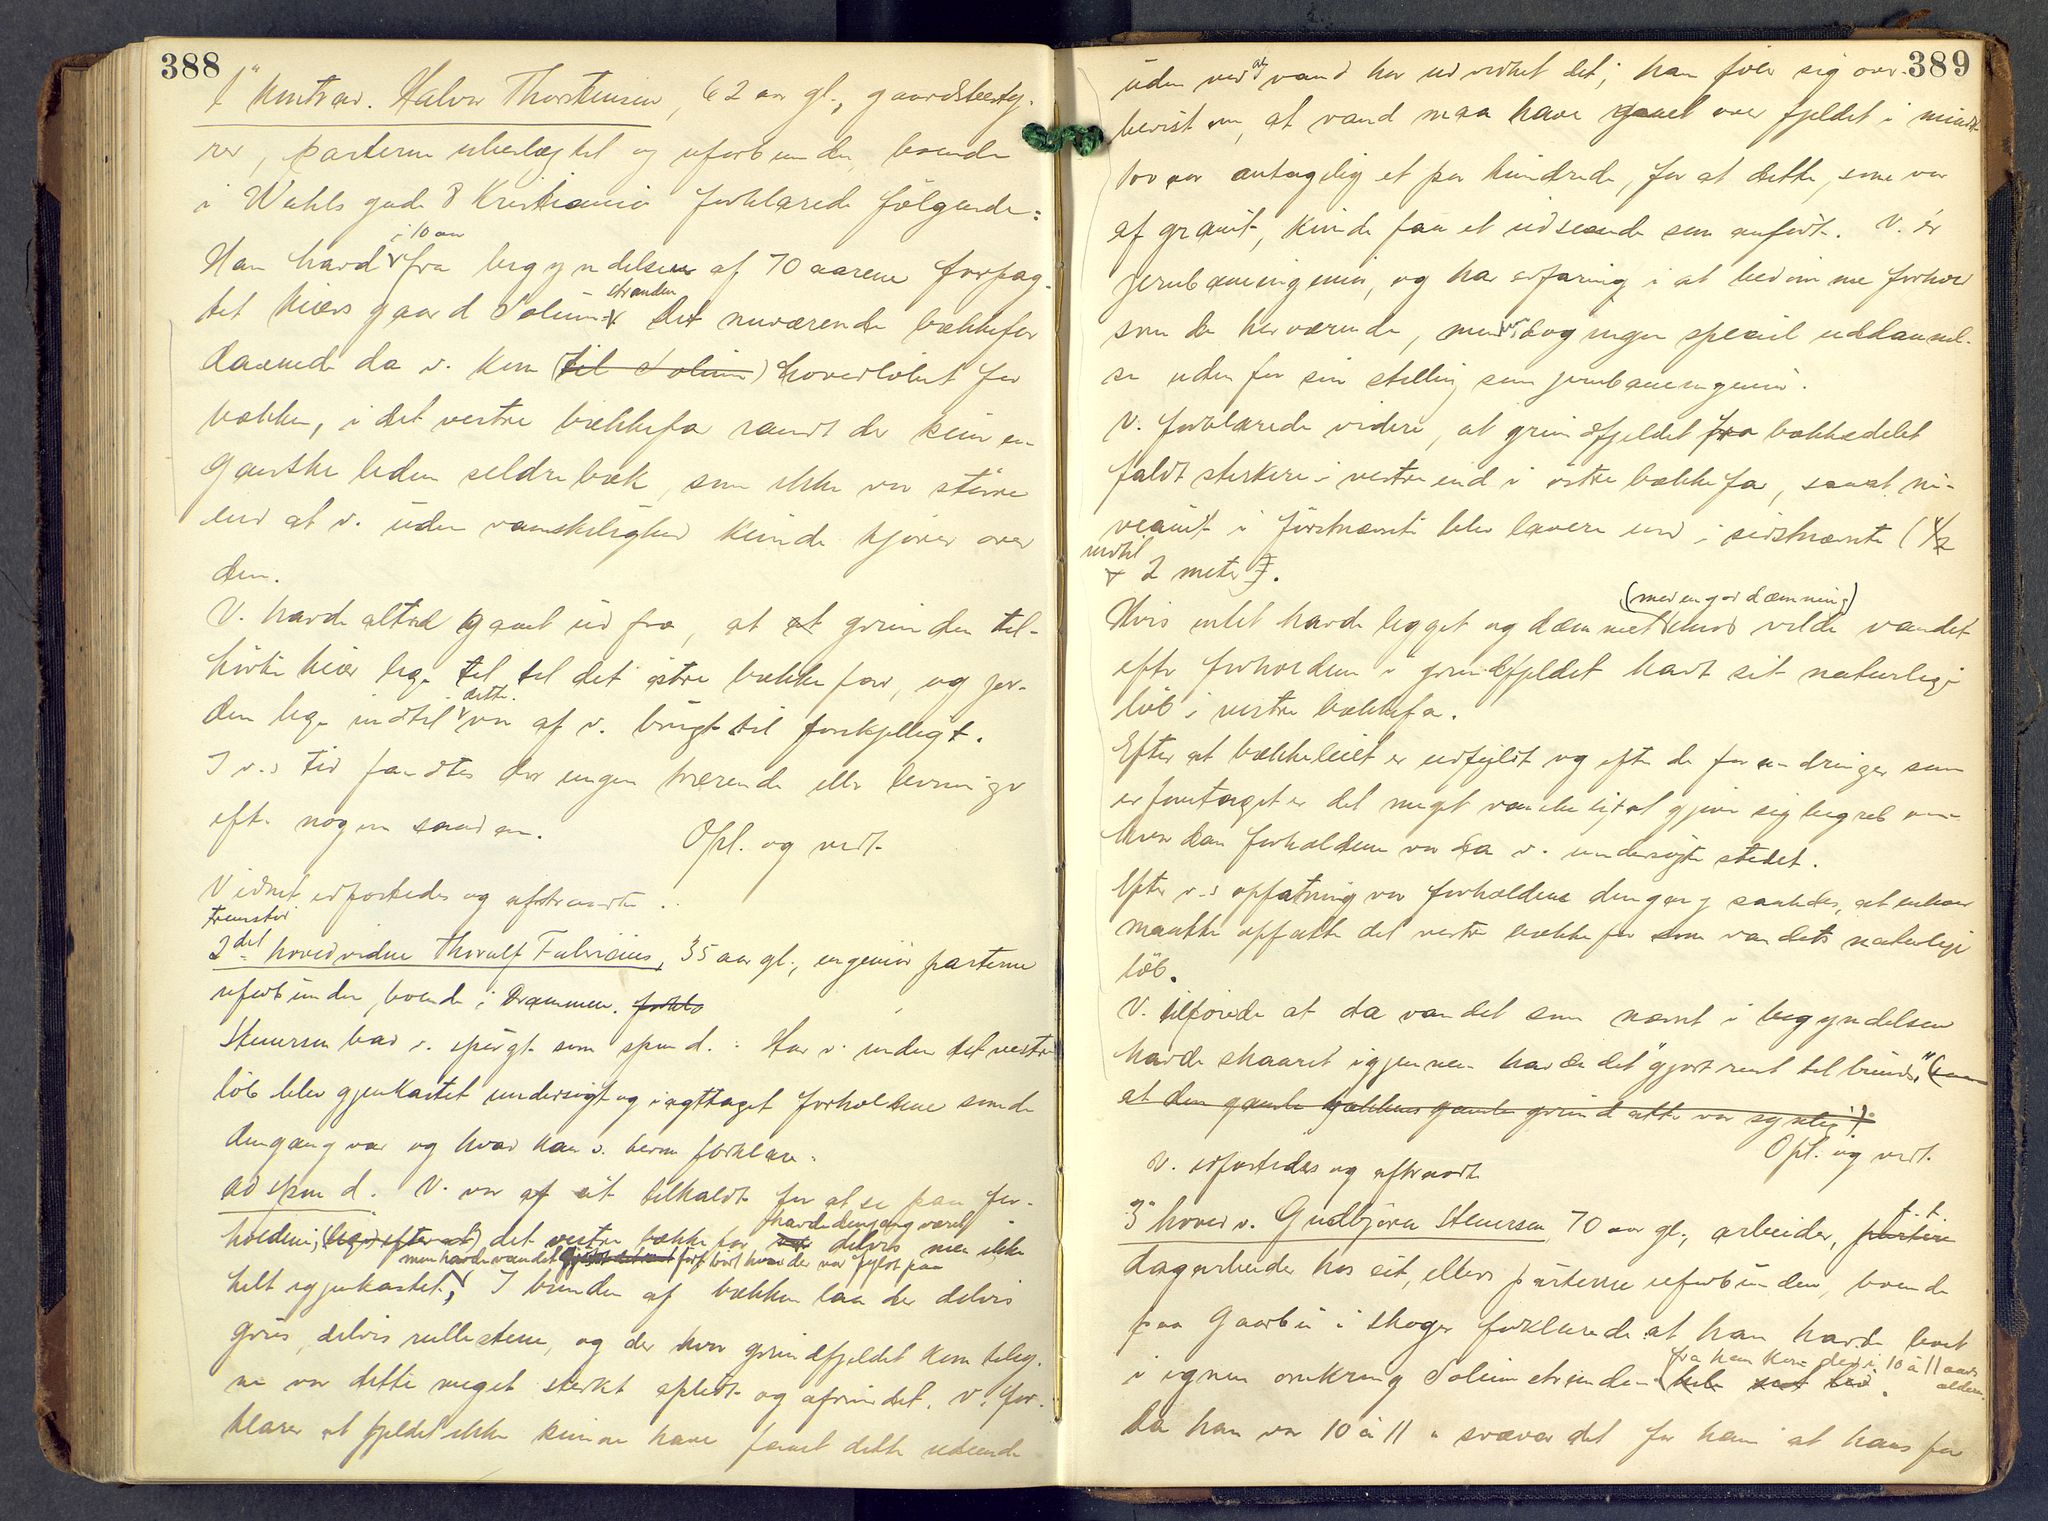 388
1ste Kontrav. Halvor Thorstensen, 62 aar gl., gaardsbesty-
rer, parterne ubeslægtet og uforbunden, boende
i Wahls gade 8 Kristiania forklarede følgende:
i 10 aar
Han havde fra begyndelsen af 70 aarene forpag-
stranden
tet Kiærs gaard Solum. Det nuværende bækkefar
dannede da v. kom (til Solum) hovedløbet for
bækken, i det vestre bækkefar randt der kun en
ganske liden sildrebæk, som ikke var større
end at v. uden vanskelighed kunde kjøre over
den.
V. havde altid gaaet ud fra, at at grunden til-
hørte Kiær lige til til det østre bækkefar, og jor-
dette
den lige indtil var af v. brugt til forskjelligt.
I v.s tid fandtes der ingen værende eller levninger
efter nogen saadan.
Opl. og vedt.
Vidnet edfæstedes og aftraadte.
fremstod
2det hovedvidne Thoralf Fabricius, 35 aar gl., ingeniør parterne
uforbunden, boende i Drammen. forkla
Steenersen bad v. spurgt som spm d.: Har v. inden det vestre
løb blev gjenkastet undersøgt og iagttaget forholdene som de
dengang var og hvad kan v. herom forklare.
ad spm d. V. var af cit. tilkaldt for at se paa for-
havde dengang været
holdene, (lige efter at) det vestre bækkefar var delvis men ikke
men havde vandet gjort det rent ført bort hvad der var fyldt paa
helt igjenkastet, I bunden af bækken laa der delvis
grus, delvis rullestene, og der hvor grundfjeldet kom tilsy-
ne var dette meget sterkt slidt og afrundet. V. for-
klarer at fjeldet ikke kunde have faaet dette udseende
389
uden ved at vand har udvidet det; han føler sig over-
bevist om, at vand maa have gaaet over fjeldet i mindst
100 aar antagelig et par hundrede, for at dette, som var
af granit, kunde faa et udseende som anført. V. er
jernbaneingeniør, og har erfaring i at bedømme forhold
som de herværende, men har dog ingen speciel uddannel-
se uden for sin stilling som jernbaneingeniør.
V. forklarede videre, at grundfjeldet fra bækkedelet
faldt sterkere i vestre end i østre bækkefar, saa at ni-
veauet i førstnævnte blev lavere end i sidstnævnte (1/2
indtil
2 meter).
(med en gad dæmning)
Hvis intet havde ligget og dæmmet imod vilde vandet
efter forholdene i grundfjeldet havt sit naturlige
løb i vestre bækkefar.
Efter at bækkeleiet er udfyldt og efter de forandringer som
er foretaget er det meget vanskeligt at gjøre sig begreb om
hvordan forholdene var da v. undersøgte stedet.
Efter v.s opfatning var forholdene dengang saaledes, at enhver
maatte opfatte det vestre bækkefar som vandets naturlige
løb.
V. tilføiede at da vandet som nævnt i begyndelsen
havde skaaret igjennem havde det "gjort rent til bunds," (saa
at den gamle bækkens gamle grund atter var synlig).
Opl. og vedt.
V. edfæstedes og aftraadte
3die hovedv. Gudbjørn Steenersen 70 aar gl., arbeider, parterne
t. t.
dagarbeider hos cit., ellers parterne uforbunden, boende
paa Gaarbu i Skoger forklarede at han havde levet
fra han kom der i 10 à 11 aars
alderen
i egnen omkring Solumstranden hele sit liv.
Da han var 10 à 11 a svæver det for ham at hans far